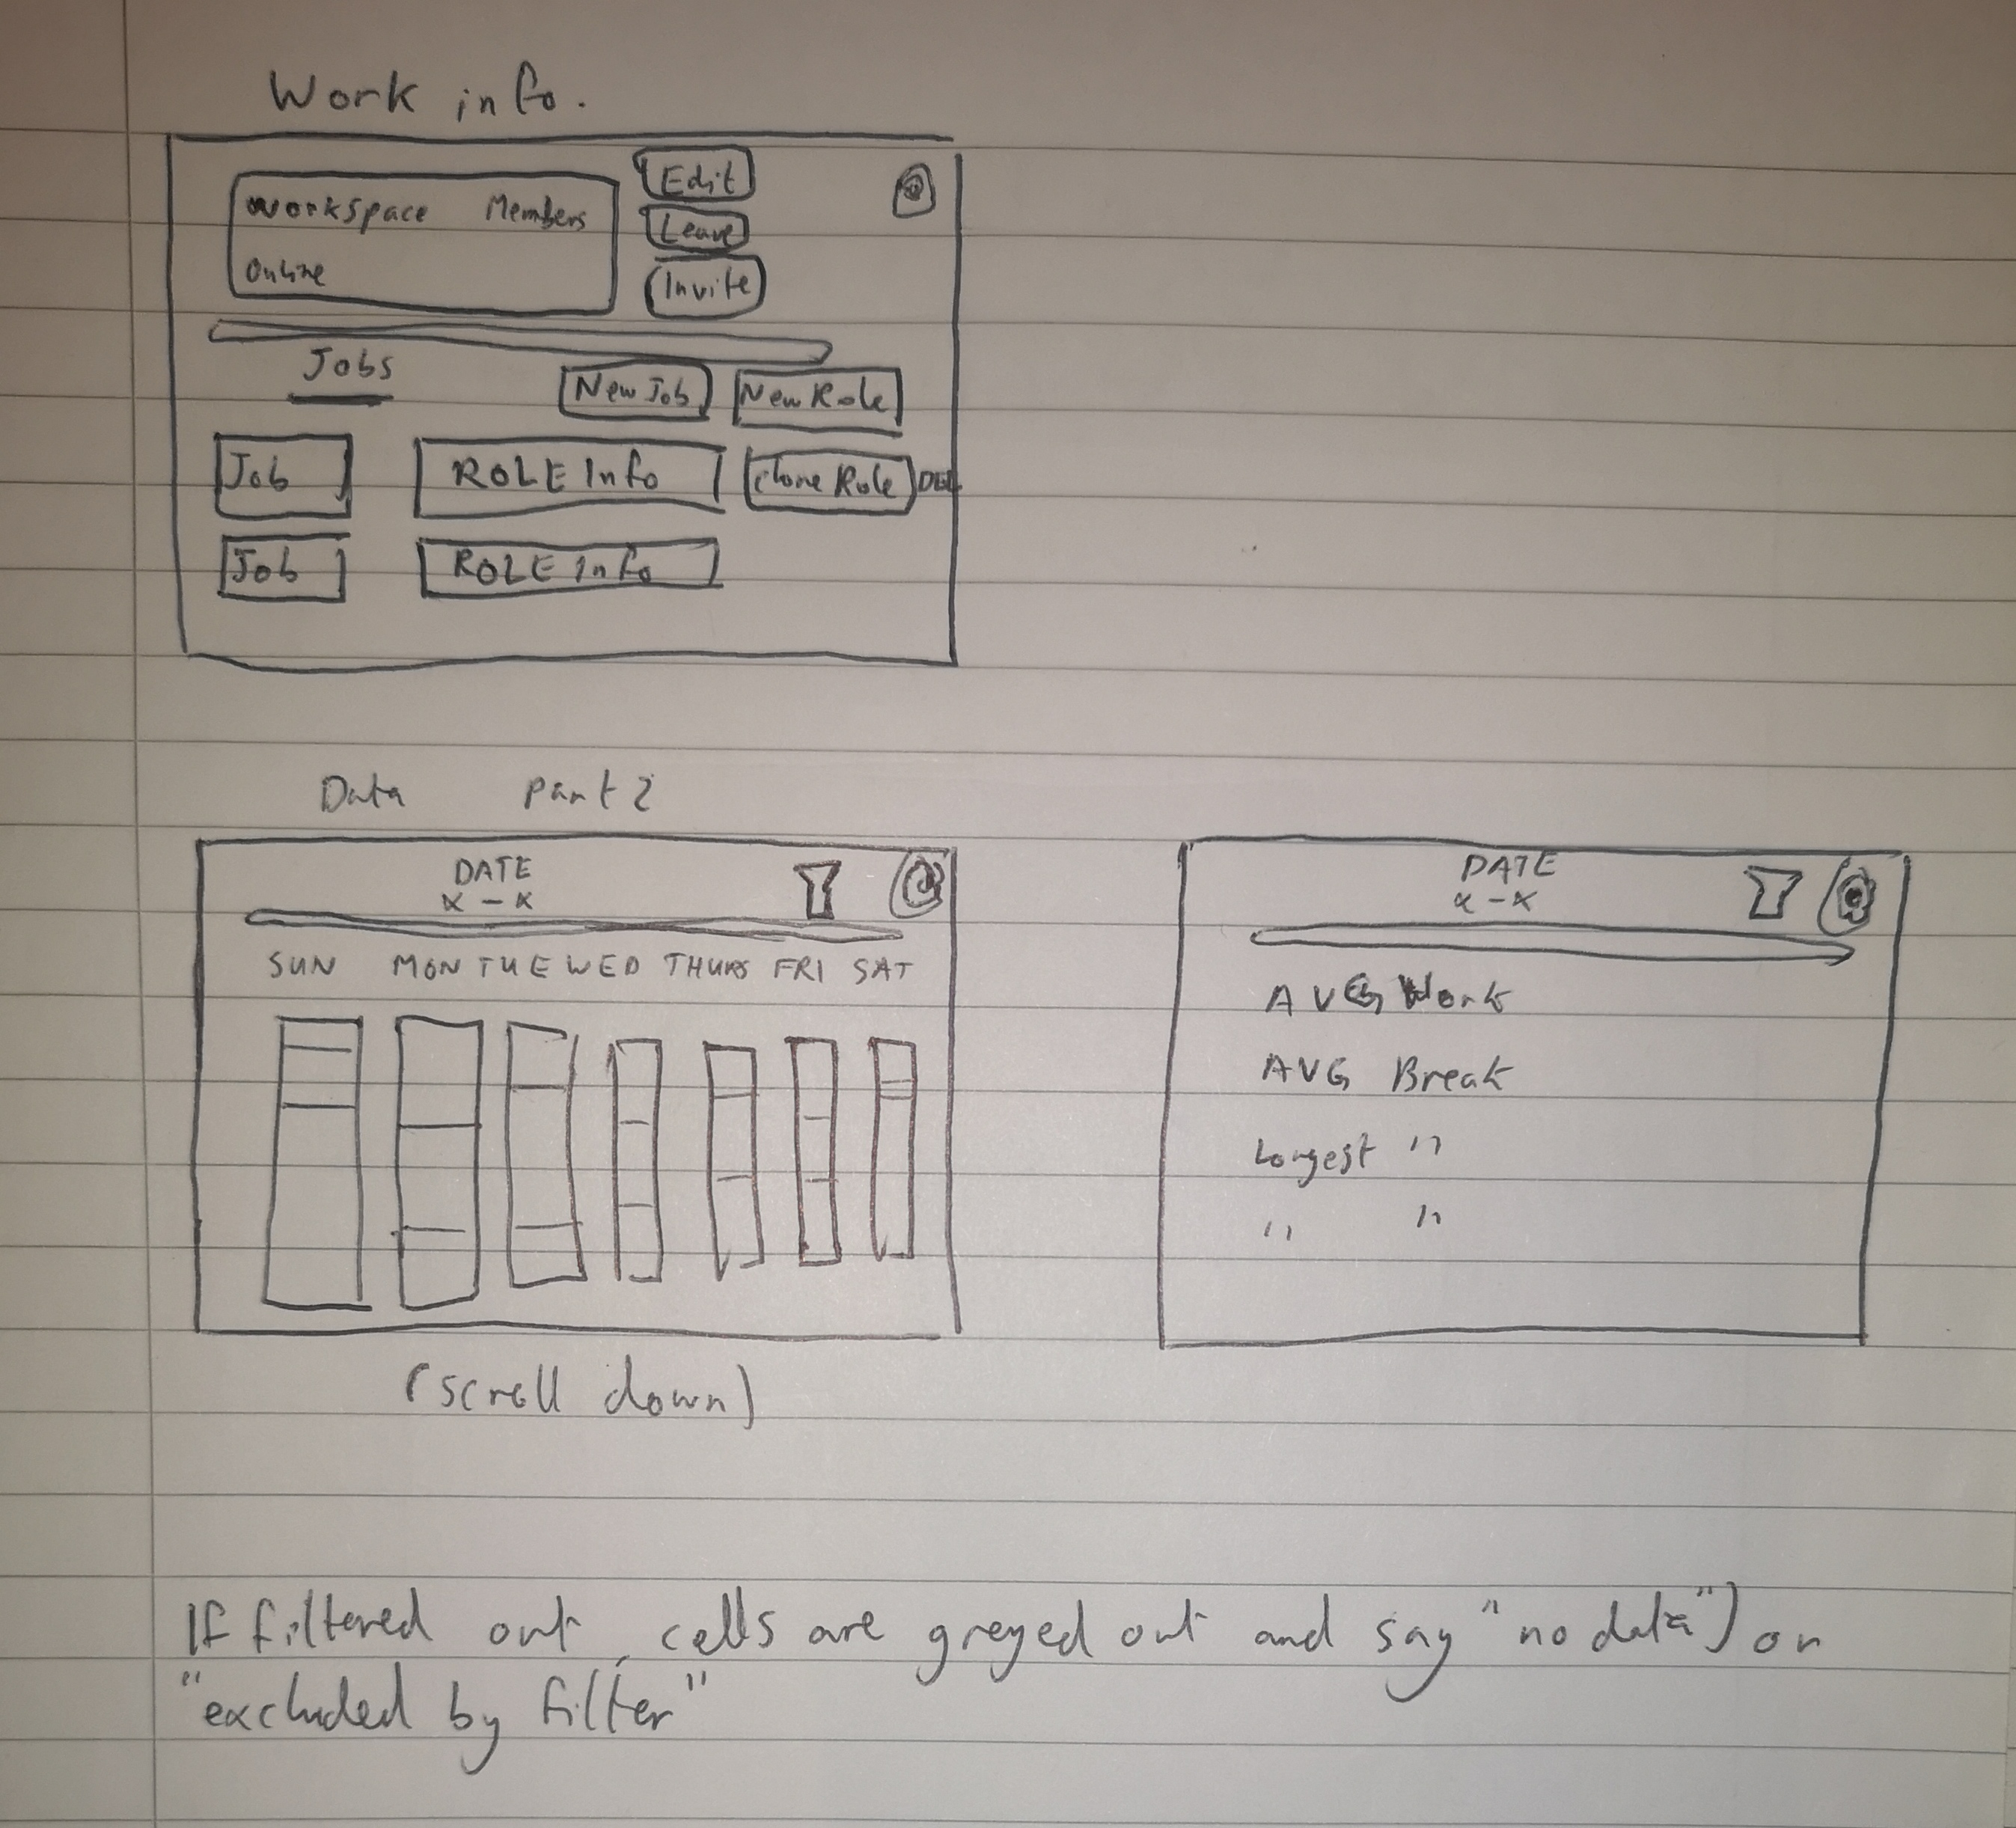 Work info.
Workspace Members
Online
Edit
Leave
Invite
Jobs
New Job New Role
Job ROLE Info Clone Role DEL
Job ROLE Info
Data part 2
DATE
x - x
SUN MON TUE WED THURS FRI SAT
(scroll down)
DATE
x - x
AVG Work
AVG Break
Longest "
" "
If filtered out, cells are greyed out and say "no data") or
"excluded by filter"